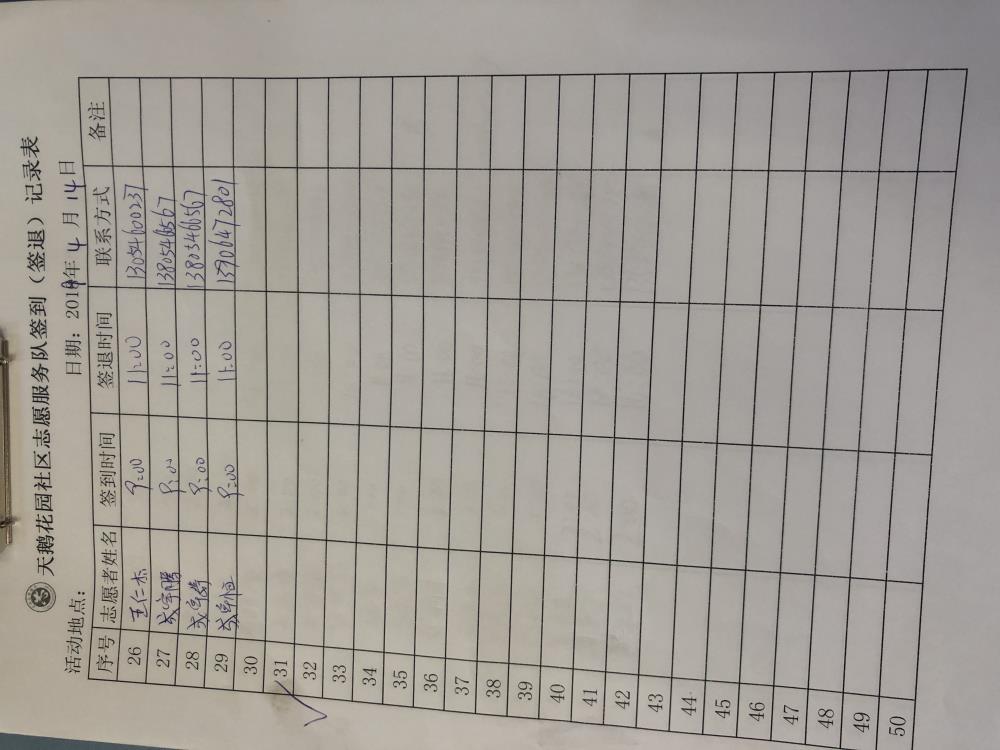 天鹅花园社区志愿服务队签到（签退）记录表
活动地点： 日期：2019年4月14日
序号 志愿者姓名 签到时间 签退时间 联系方式 备注
26 王仁杰 9:00 11:00 13054600237
27 9:00 11:00 13805466567
28 9:00 11:00 13805466567
29 9:00 11:00 13906472801
30
31
32
33
34
35
36
37
38
39
40
41
42
43
44
45
46
47
48
49
50